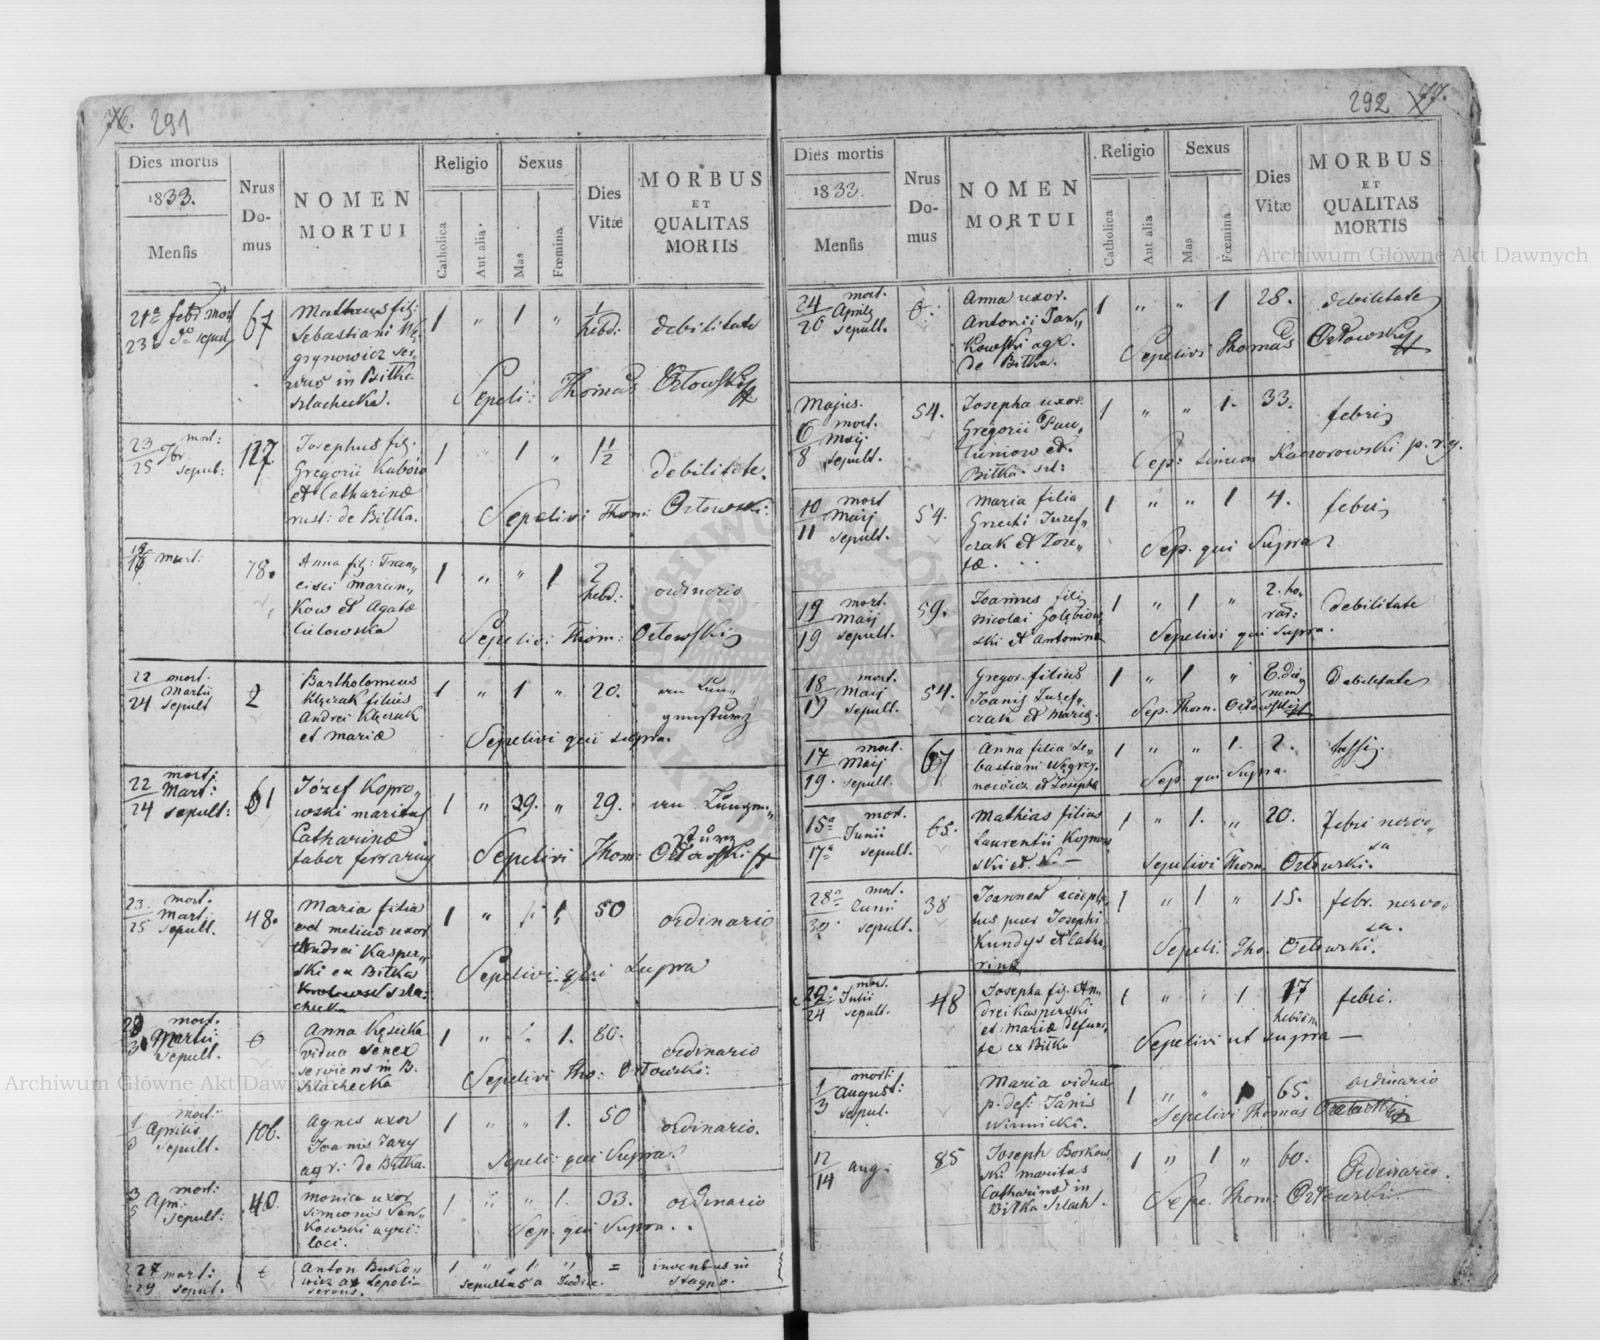 76. 291
Dies mortis
1833.
Mensis
Nrus
Do-
mus
NOMEN
MORTUI
Religio
Catholica
Aut alia.
Sexus
Mas
Fœmina
Dies
Vitæ
MORBUS
ET
QUALITAS
MORTIS
21a febr mort
23a sepult
67
Mathaus fil:
Sebastiani
grynowicz
in Bilka
szlachecka.
1 " 1 "
hebd:
debilitate
Sepeli: Thomas Orlowski
23 mort:
25 sepult:
117
Josephus fil:
Gregorii
et Catharinæ
rust: de Bilka.
1 " 1 "
1 1/2
debilitate.
Sepelivi Thom: Orlowski:
mart:
78.
Anna fil: Fran„
cisci Marcin„
kow et Agatæ
1 " " 1
2
hebd:
ordinario
Sepelivi Thom: Orlowski
22 mort.
24 Martii
sepult
2
Bartholomeus
filius
Andrei
et Mariæ
1 " 1 "
20.
Sepelivi qui supra.
22 mort:
24 Mart:
sepult:
61
Józef Kopro„
wski maritus
Catharinæ
faber ferrarius
1 " 29. "
29.
Sepelivi Thom: Orlowski
23. mort.
25 Martii
sepult.
48.
Maria filia
vel melius uxor
Andrei Kasper„
ski ex Bilka
szla:
checka
1 "
50
ordinario
Sepelivi qui supra
28 mort.
Martii
sepult.
Anna Kęsicka
vidua senex
serviens in B.
szlachecka
1 " 1.
80.
ordinario
Sepelivi Tho: Orlowski:
1 mort:
3 Aprilis
sepult.
106.
Agnes uxor
Joanis Jary
agr: de Bilka.
1 " " 1.
50
ordinario.
Sepeli: qui Supra.
3 mort:
5 Apr:
sepult:
40.
Monica uxor
Simionis
kowski agri:
loci.
1 " " 1.
33.
ordinario
Sep. qui Supra..
27 mart:
29 sepul.
Anton Busko„
wicz
servus.
1 " 1. "
=
inventus in
stagno.
sepultus a
292 77.
Dies mortis
1833.
Mensis
Nrus
Do-
mus
NOMEN
MORTUI
Religio
Catholica
Aut alia
Sexus
Mas
Fœmina
Dies
Vitæ
MORBUS
ET
QUALITAS
MORTIS
24 mort.
26 Aprilis
sepult.
6.
Anna uxor.
Antonii Jan„
kowski agr.
de Bilka.
1 " " 1
28.
debilitate
Sepelivi Thomas Orlowski
Majus.
6 mort.
8 Maij
sepult.
54.
Josepha uxor.
Gregorii Paw„
Bilka. szl:
1 " " 1.
33.
febris
Sep: Simeon Kaczorowski p. r. g.
10 mort
11 Maij
sepult.
54.
Maria filia
Jusef„
czak et Jose„
fæ. . .
1 " " 1
4.
febris
Sep. qui Supra
19 mort.
19 Maij
sepult.
59.
Joannes filius
Nicolai Golębiow
ski et Antoninæ
1 " 1 "
2. ho„
rar:
debilitate
Sepelivi qui supra.
18 mort.
19 Maij
sepult.
54.
Gregor. filius
Joanis Jusef„
czak et Mariæ.
1 " 1 "
6. die„
rum
Debilitate
Sep. Thom. Orlowski
17 mort.
19. Maij
sepult.
67
Anna filia Se„
bastiani Węgrzy„
nowicz et Josepha
1 " " 1.
2.
tussis.
Sep. qui Supra.
15a mort.
Junii
17a sepult.
65.
Mathias filius
Laurentii Koprow
ski et N. —
1 " 1. "
20.
febri nervo„
sa
Sepelivi Thom. Orlowski.
28a mort.
Junii
30. sepult.
38
Joannes
puer Josephi
Kundys et Catha„
rinæ
1 " 1 "
15.
febr. nervo„
sa.
Sepeli. Tho. Orlowski.
mort.
24 Julii
sepult.
48
Josepha fil. An„
drei Kasperski
et Mariæ defunc„
tæ ex Bilka
1 " 1
17
hebdom
febri.
Sepelivi ut supra —
1 mort:
3 August:
sepul.
Maria vidua
p. def: Joanis
Winnicki.
1 " " 1
65.
ordinario
Sepelivi Thomas Orlowski
12
14 aug:
85
Joseph Borkow„
ski maritus
Catharinæ in
Bilka Szlach.
1 " 1 "
60.
Ordinario.
Sepe. Thom: Orlowski
Archiwum Główne Akt Dawnych
Archiwum Główne Akt Dawnych